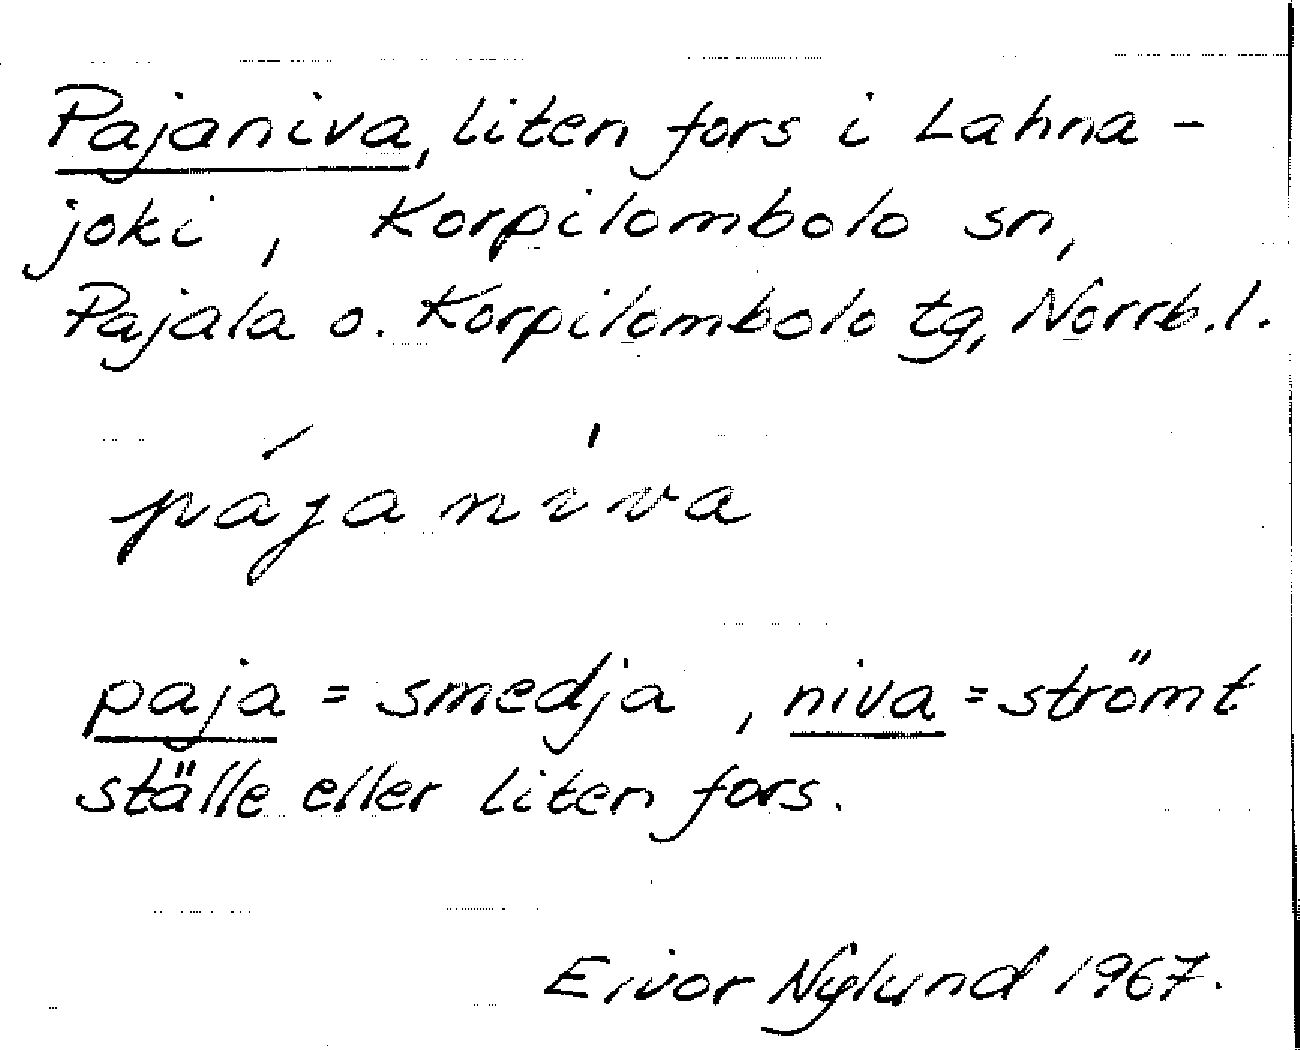 Pajaniva, liten fors i Lahna-
joki, Korpilombolo sn,
Pajala o. Korpilombolo tg, Norrb.l.
pájanìva
paja = smedja, niva = strömt
ställe eller liten fors.
Eivor Nylund 1967.